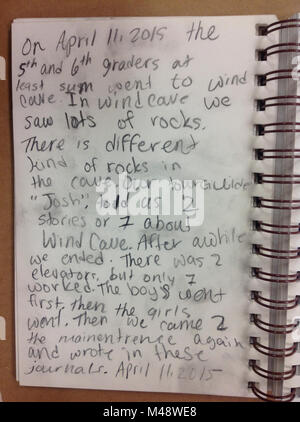 On April 11, 2015 the
5th and 6th graders at
least sum went to wind
cave. In wind cave we
saw lots of rocks.
There is different
kind of rocks in
the cave. Our tour Guilde
"Josh", told us 2
stories or 1 about
Wind Cave. After awhile
we ended. There was 2
elevators, but only 1
worked. The boys went
first, then the girls
went. Then we came 2
the mainentrence again
and wrote in these
journals. April 11, 2015
alamy
M48WE8